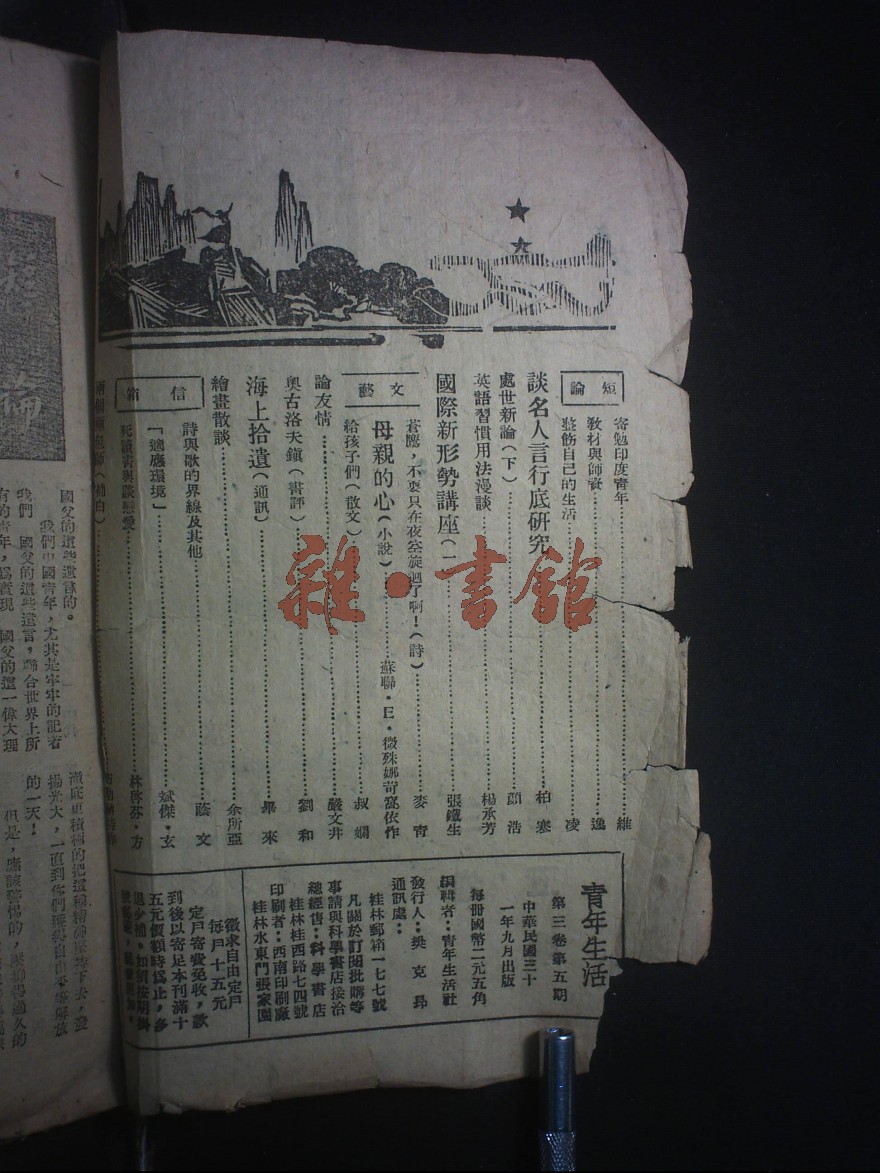 短論
寄勉印度青年……維
教材與師資……逸
整飭自己的生活……凌
談名人言行底研究……柏寒
處世新論（下）……顏浩
英語習慣用法漫談……楊承芳
國際新形勢講座（一……張鐵生
蒼鷹，不要只在夜空旋迴了啊！（詩）……麥青
文藝
母親的心（小說）……蘇聯·E·微殊娜奇窩依作
給孩子們（散文）……叔嫻
論友情……嚴文井
奧古洛夫鎮（書評）……劉和
海上拾遺（通訊）……畢來
繪畫散談……余所亞
信箱
詩與歌的界線及其他……蔭文
「適應環境」……斌傑·玄
死讀書與談戀愛……林啓芬·方
青年生活
第三卷第五期
中華民國三十
一年九月出版
每冊國幣二元五角
編輯者：青年生活社
發行人：樊克昂
通訊處：
桂林郵箱一七七號
凡關於訂閱批購等
事請與科學書店接洽
總經售：科學書店
桂林桂西路七四號
印刷者：西南印刷廠
桂林水東門張家園
徵求自由定戶
每戶十五元
定戶寄費免收，款
到後以寄足本刊滿十
五元價額時為止，多
退少補。如須按期掛
國父的這些遺言的。
我們中國青年，尤其是牢牢的記着
我們　國父的這些遺言，聯合世界上所
有的青年，爲實現　國父的這一偉大理
徹底更積極的把這種精神堅持下去，發
揚光大，一直到你們獲得自由平等解放
的一天！
雜·書館